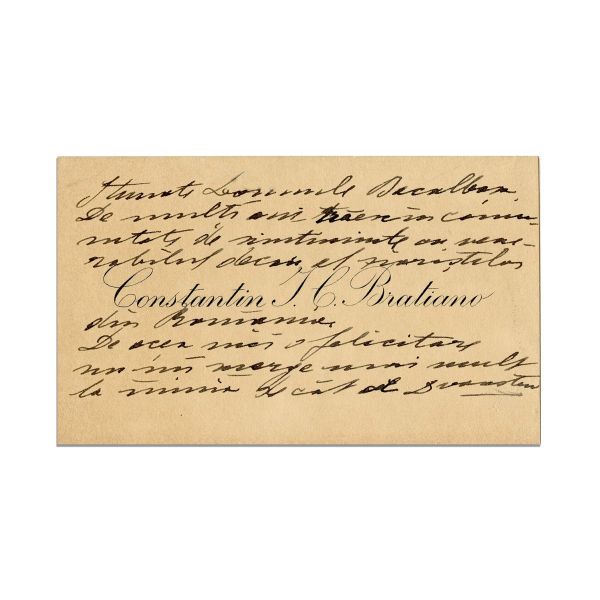 Stimate Domnule Bacalbașa,
De mulți ani trăesc în comu-
nitate de simtiminte cu vene-
rabilul decan al ziariștilor
Constantin I. C. Bratiano
din România.
De acea nici o felicitare
nu'mi merge mai mult
la inimă de cât al Dvoastră